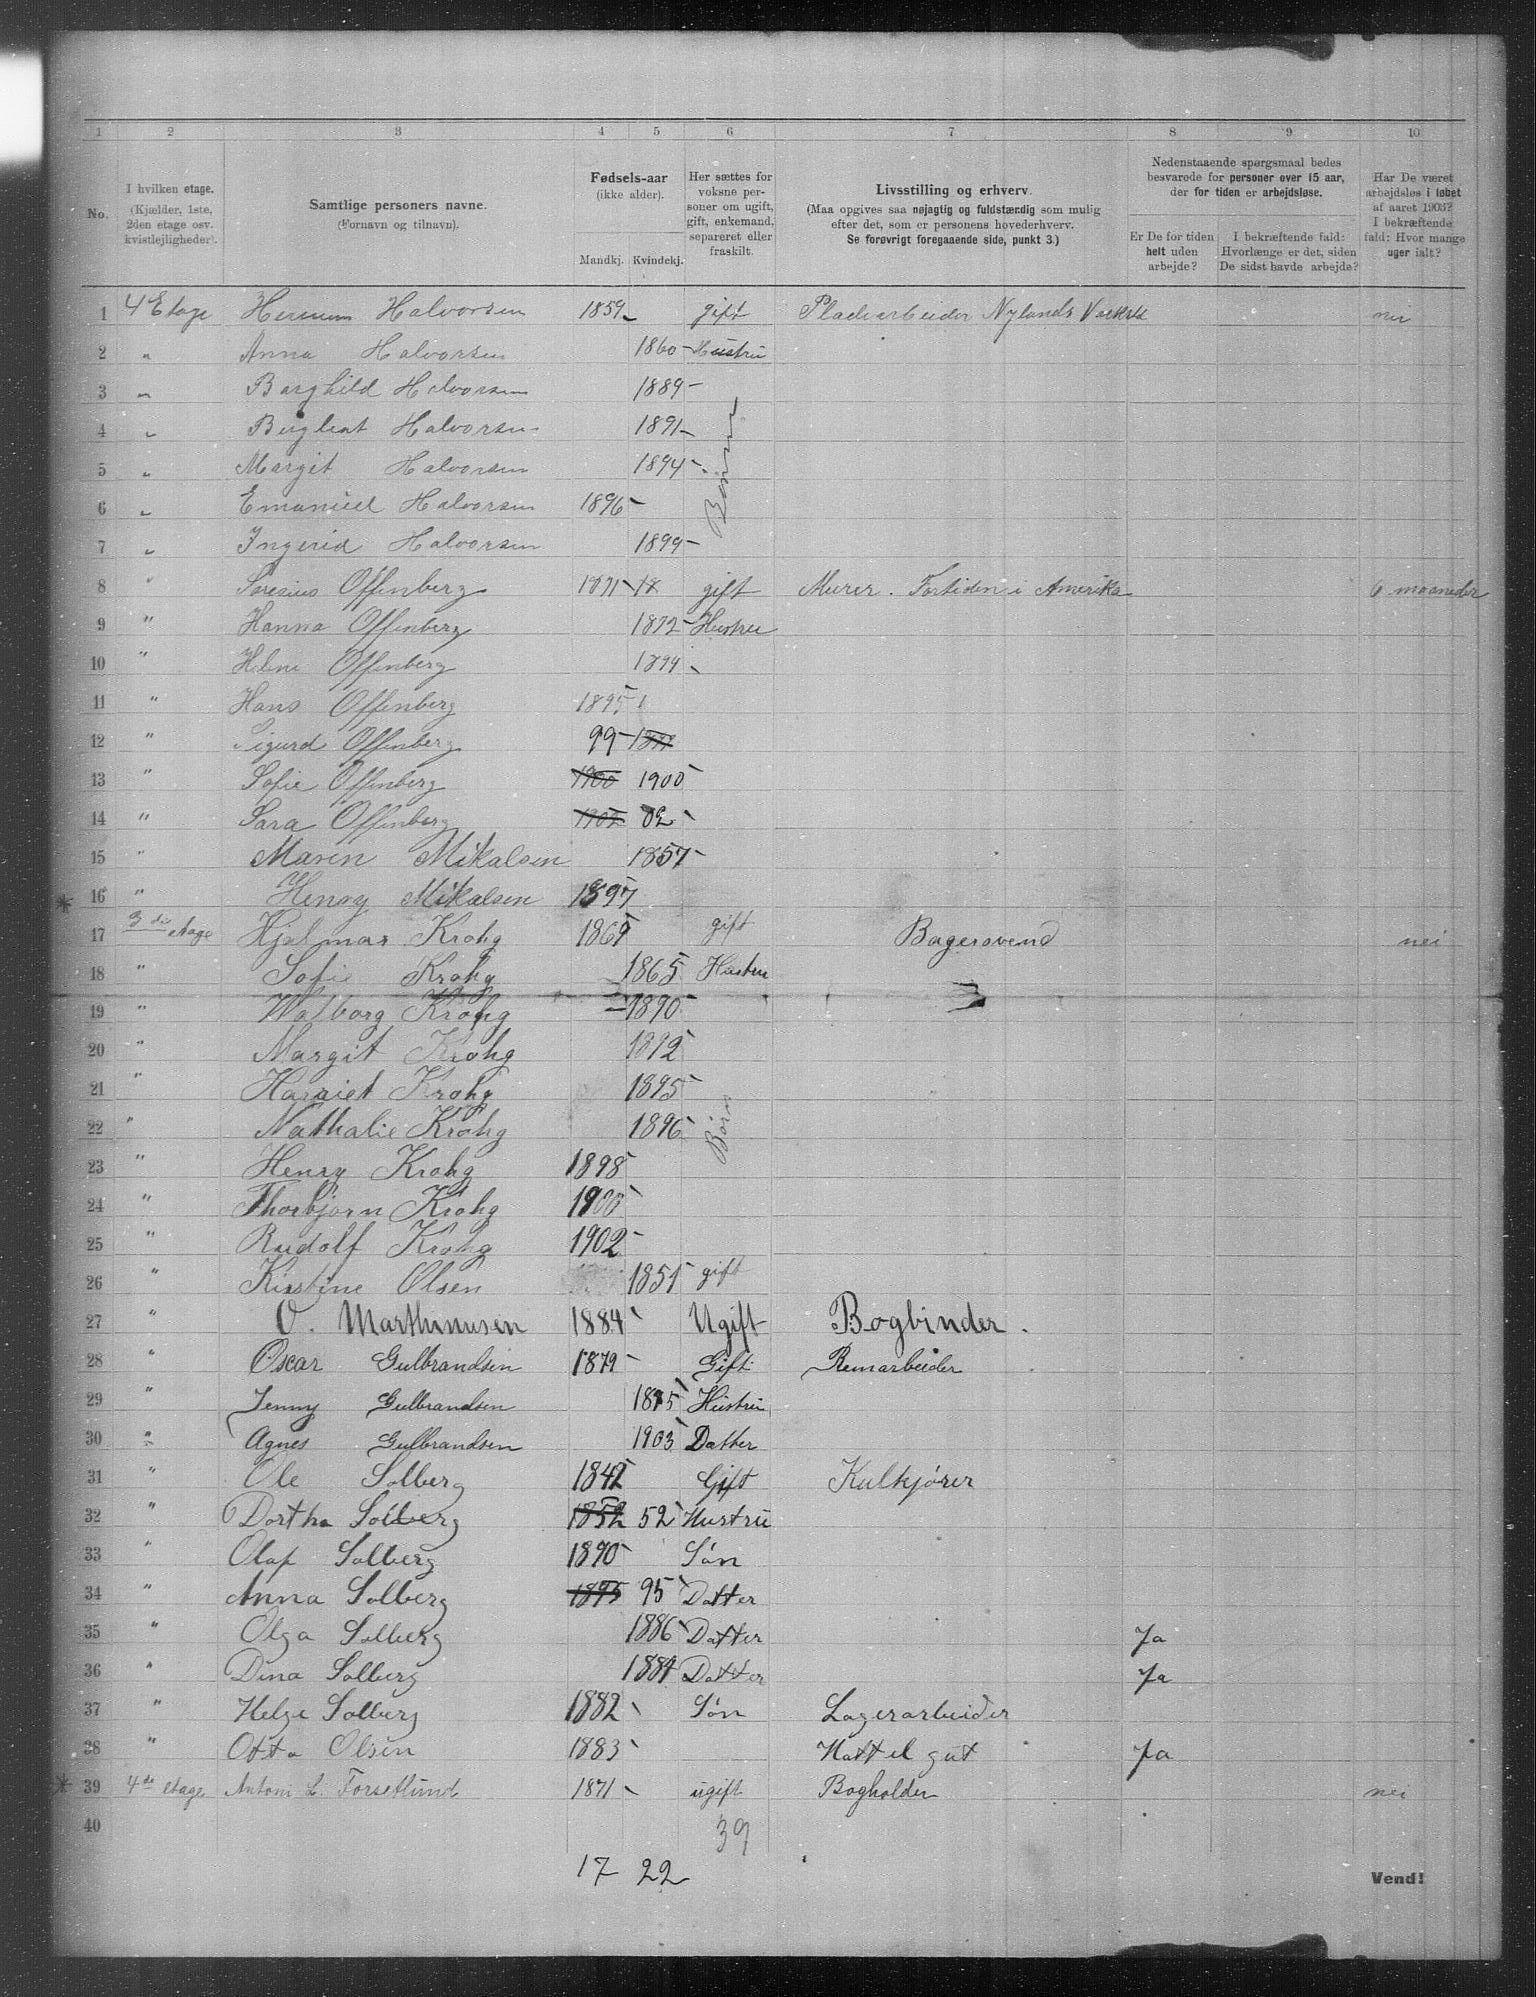 1 2 3 4 5 6 7 8 9 10
No.
I hvilken etage.
(Kjælder, 1ste,
2den etage osv.
kvistlejligheder).
Samtlige personers navne.
(Fornavn og tilnavn).
Fødsels-aar
(ikke alder).
Mandkj. Kvindekj.
Her sættes for
voksne per-
soner om ugift,
gift, enkemand,
separeret eller
fraskilt.
Livsstilling og erhverv.
(Maa opgives saa nøjagtig og fuldstærdig som mulig
efter det, som er personens hovederhverv.
Se forøvrigt foregaaende side, punkt 3.)
Nedenstaaende spørgsmaal bedes
besvarede for personer over 15 aar,
der for tiden er arbejdsløse.
Er De for tiden
helt uden
arbejde?
I bekræftende fald:
Hvorlænge er det, siden
De sidst havde arbejde?
Har De været
arbejdsløs i løbet
af aaret 1903?
I bekræftende
fald: Hvor mange
uger ialt?
1 4 Etage Herman Halvorsen 1859 gift Pladearbeider Nylands nei
2 " Anna Halvorsen 1860 Hustru
3 " Borghild Halvorsen 1889
4 " Halvorsen 1891
5 " Margit Halvorsen 1894
6 " Emanuel Halvorsen 1896
7 " Ingerid Halvorsen 1899
Børn
8 " Offenberg 1871 gift Murer. Fortiden i Amerika 6 maaneder
9 " Hanna Offenberg 1872 Hustru
10 " Offenberg 1894
11 " Hans Offenberg 1895
12 " Sigurd Offenberg 99
13 " Sofie Offenberg 1900 1900
14 " Sara Offenberg 1902 02
15 " Maren Mikalsen 1857
16 " Henry Mikalsen 1897
17 3die etage Hjalmar Krohg 1869 gift Bagersvend nei
18 " Sofie Krohg 1865 Hustru
19 " Walborg Krohg 1890
20 " Margit Krohg 1892
21 " Harriet Krohg 1895
22 " Nathalie Krohg 1896
Børn
23 " Henry Krohg 1898
24 " Thorbjørn Krohg 1900
25 " Rudolf Krohg 1902
26 " Kirstine Olsen 1851 gift
27 " O. Marthinusen 1884 Ugift Bogbinder.
28 " Oscar Gulbrandsen 1879 Gift Remarbeider
29 " Jenny Gulbrandsen 1875 Hustru
30 " Agnes Gulbrandsen 1903 Datter
31 " Ole Solberg 1842 Gift Kulkjører
32 " Dortha Solberg 1852 52 Hustru
33 " Olaf Solberg 1890 Søn
34 " Anna Solberg 1895 95 Datter
35 " Olga Solberg 1886 Datter Ja
36 " Dina Solberg 1884 Datter Ja
37 " Helge Solberg 1882 Søn Lagerarbeider
38 " Otto Olsen 1883 gut Ja
39 4de etage Antoni L. Forsetlund 1871 ugift Bogholder nei
40 39
17 22
Vend!